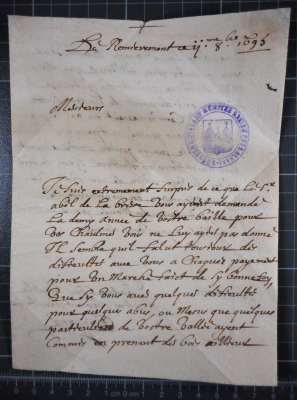 De Remiremont ce 11.me 8bre 1695
Messieurs
Je suis extremement surpris de ce que le Sr
abil de la
vous ayant demandé
la demy Annee de vostre taille pour
vos chaulmes vous ne luy ayés pas donné
Il semble qu'il falut tousiour des
difficultés avec vous a chaque payement
pour un Marché faict de sy bonne foy,
que sy vous avés quelques difficultés
pour quelque abus, ou Mesus que quelques
particuliers de vostre vallée ayent
commis en prenant des bois